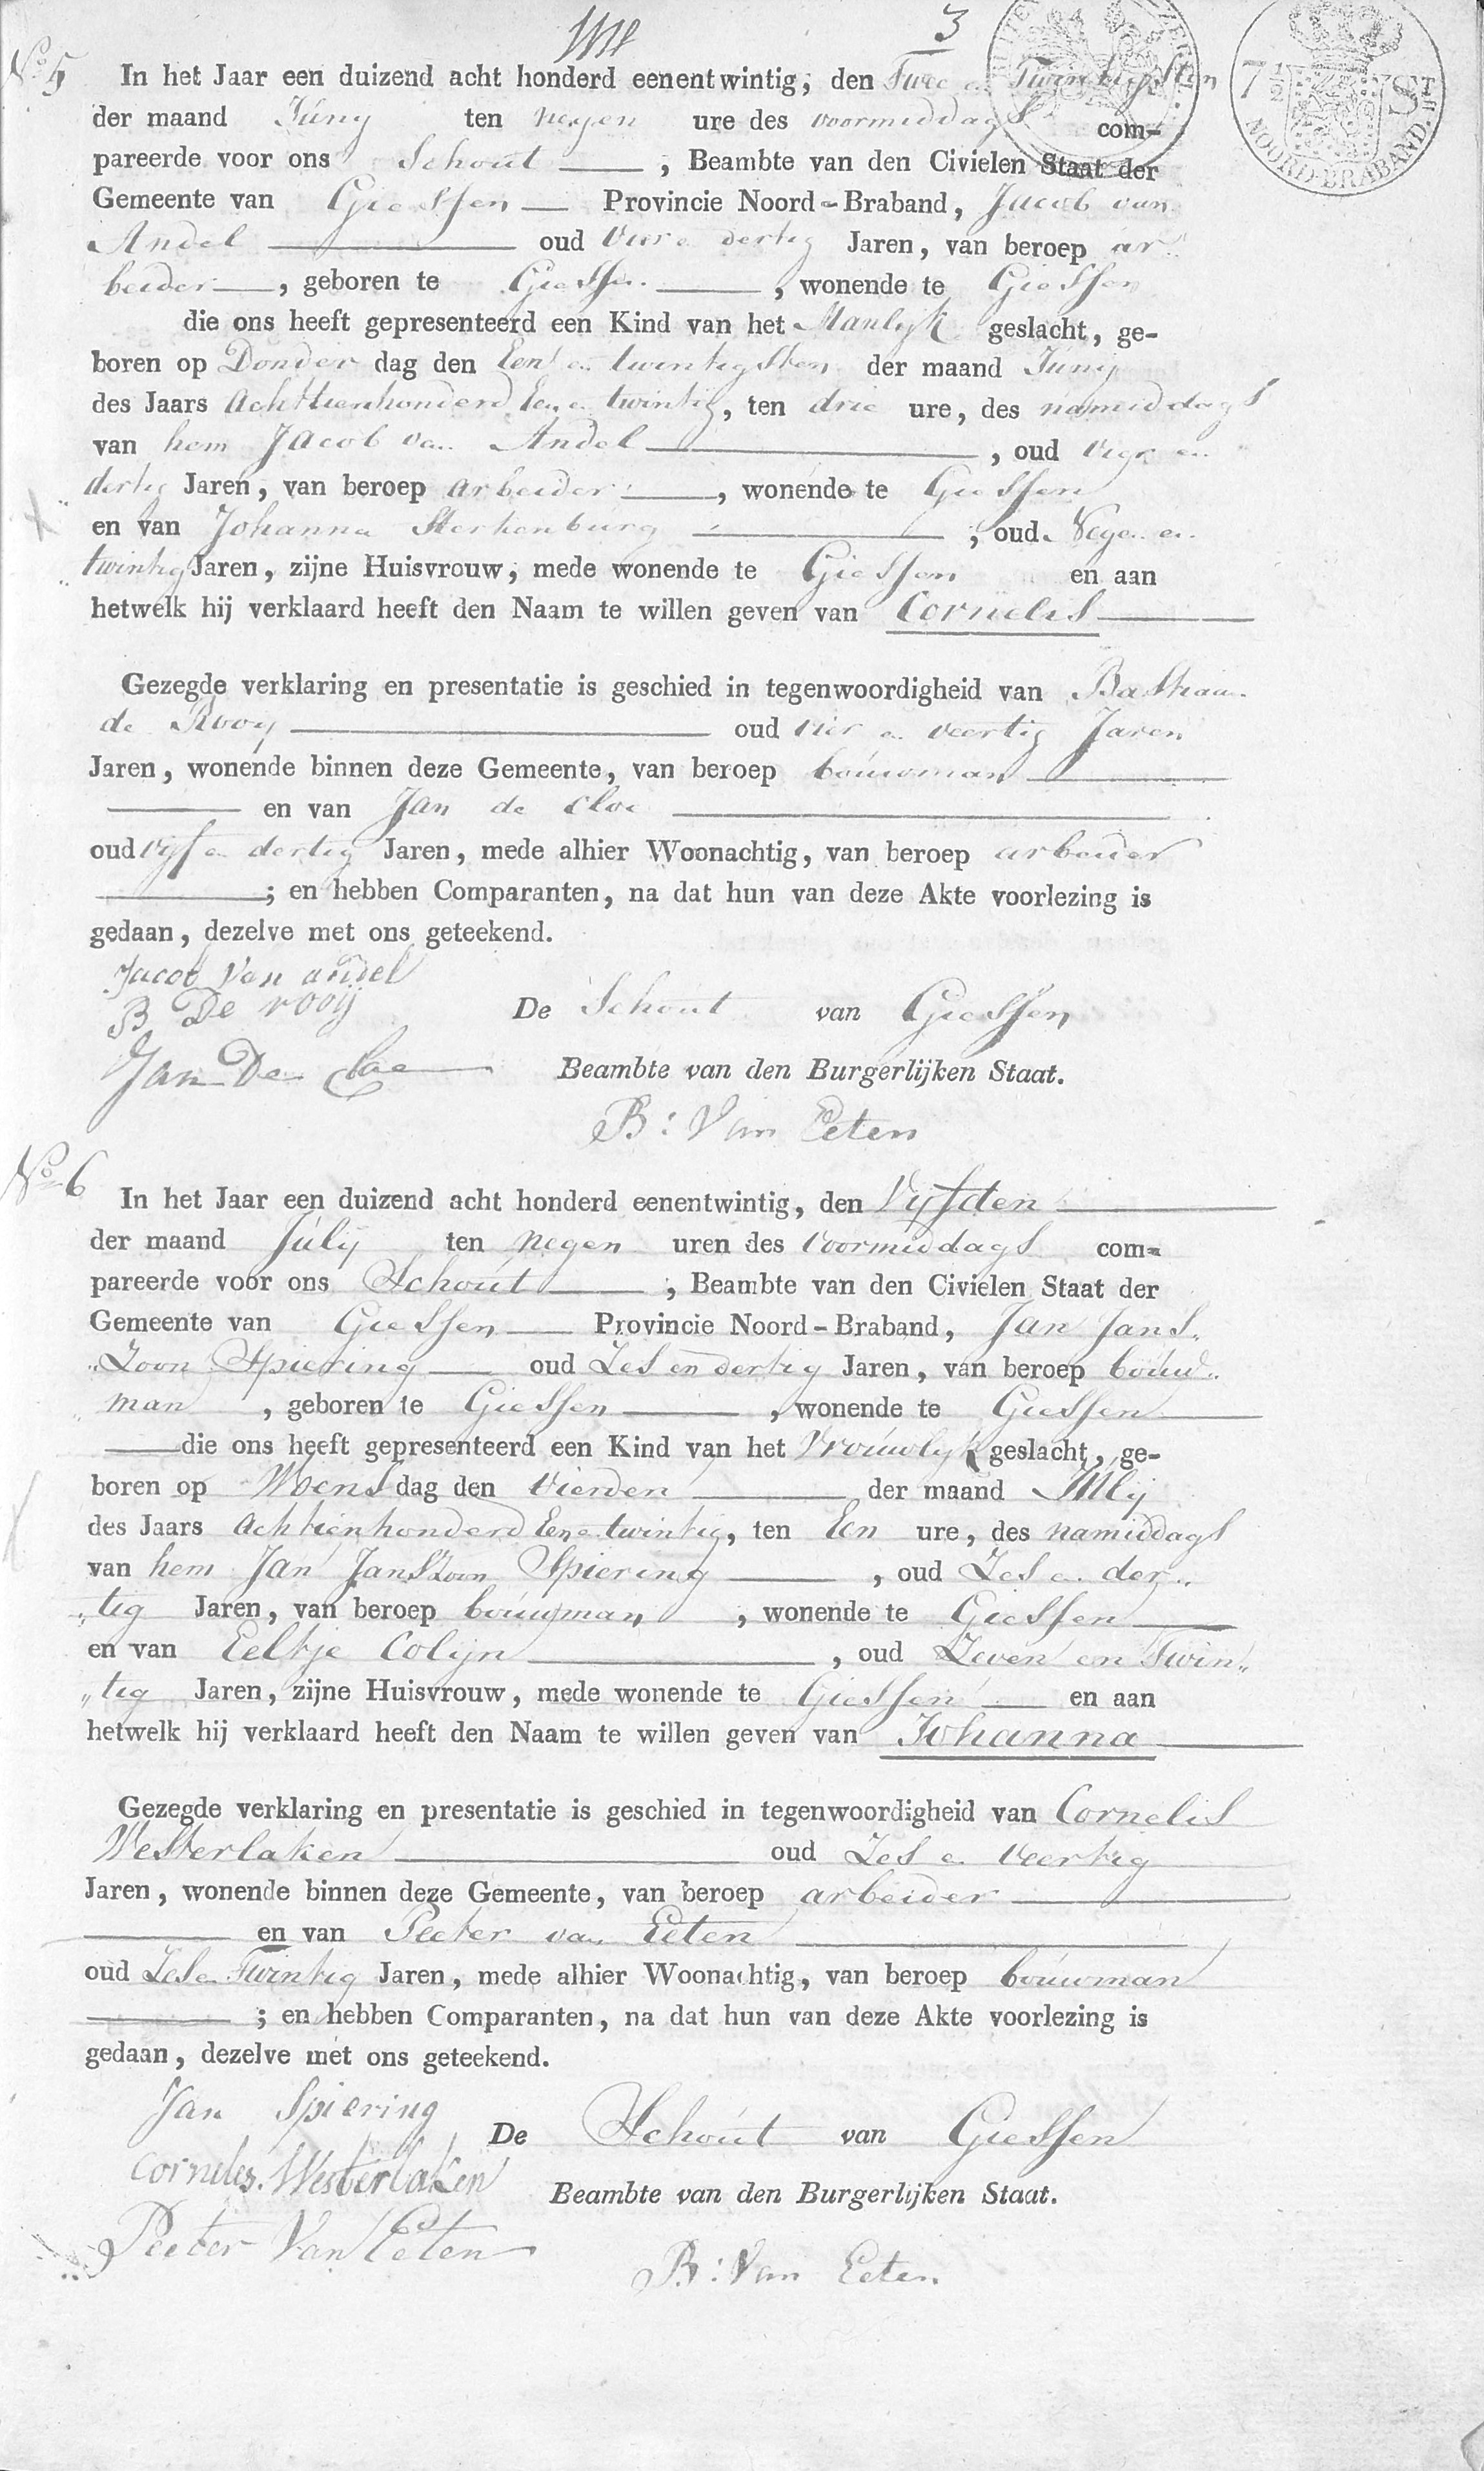 3
7½ St.
NOORD-BRABAND.
No 5
In het Jaar een duizend acht honderd eenentwintig, den Twee en Twintigsten
der maand Júny ten negen ure des voormiddags com-
pareerde voor ons Schout , Beambte van den Civielen Staat der
Gemeente van Giessen Provincie Noord-Braband, Jacob van
Andel oud vier en dertig Jaren, van beroep ar
beider , geboren te Giessen , wonende te Giessen
die ons heeft gepresenteerd een Kind van het Manlyk geslacht, ge-
boren op Donder dag den Een en twintigsten der maand Júny
des Jaars Achttienhonderd Een en twintig, ten drie ure, des namiddags
van hem Jacob van Andel , oud vier en
dertig Jaren, van beroep arbeider , wonende te Giessen
en van Johanna Sterkenburg , oud Negen en
twintig Jaren, zijne Huisvrouw, mede wonende te Giessen en aan
hetwelk hij verklaard heeft den Naam te willen geven van Cornelis
Gezegde verklaring en presentatie is geschied in tegenwoordigheid van Bastiaan
de Rooy oud vier en veertig Jaren
Jaren, wonende binnen deze Gemeente, van beroep bouwman
en van Jan de Cloe
oud vyf en dertig Jaren, mede alhier Woonachtig, van beroep arbeider
; en hebben Comparanten, na dat hun van deze Akte voorlezing is
gedaan, dezelve met ons geteekend.
Jacob Van andel
B De rooij
De Schout van Giessen
Jan De Cloe
Beambte van den Burgerlijken Staat.
B: Van Eeten
No 6
In het Jaar een duizend acht honderd eenentwintig, den Vyfden
der maand Júly ten negen uren des voormiddags com-
pareerde voor ons Schout , Beambte van den Civielen Staat der
Gemeente van Giessen Provincie Noord-Braband, Jan Jans
Zoon Spiering oud Zes en dertig Jaren, van beroep bouw
man , geboren te Giessen , wonende te Giessen
die ons heeft gepresenteerd een Kind van het Vrouwlyk geslacht, ge-
boren op Woens dag den Vierden der maand Júly
des Jaars Achtienhonderd Een en twintig, ten Een ure, des namiddags
van hem Jan Janszoon Spiering , oud Zes en der
tig Jaren, van beroep bouwman , wonende te Giessen
en van Eeltje Colyn , oud Zeven en Twin
tig Jaren, zijne Huisvrouw, mede wonende te Giessen en aan
hetwelk hij verklaard heeft den Naam te willen geven van Johanna
Gezegde verklaring en presentatie is geschied in tegenwoordigheid van Cornelis
Westerlaken oud Zes en veertig
Jaren, wonende binnen deze Gemeente, van beroep arbeider
en van Peeter van Eeten
oud Zes en Twintig Jaren, mede alhier Woonachtig, van beroep bouwman
; en hebben Comparanten, na dat hun van deze Akte voorlezing is
gedaan, dezelve met ons geteekend.
Jan Spiering
De Schout van Giessen
Cornelis Westerlaken
Beambte van den Burgerlijken Staat.
Peeter Van Eeten
B: Van Eeten